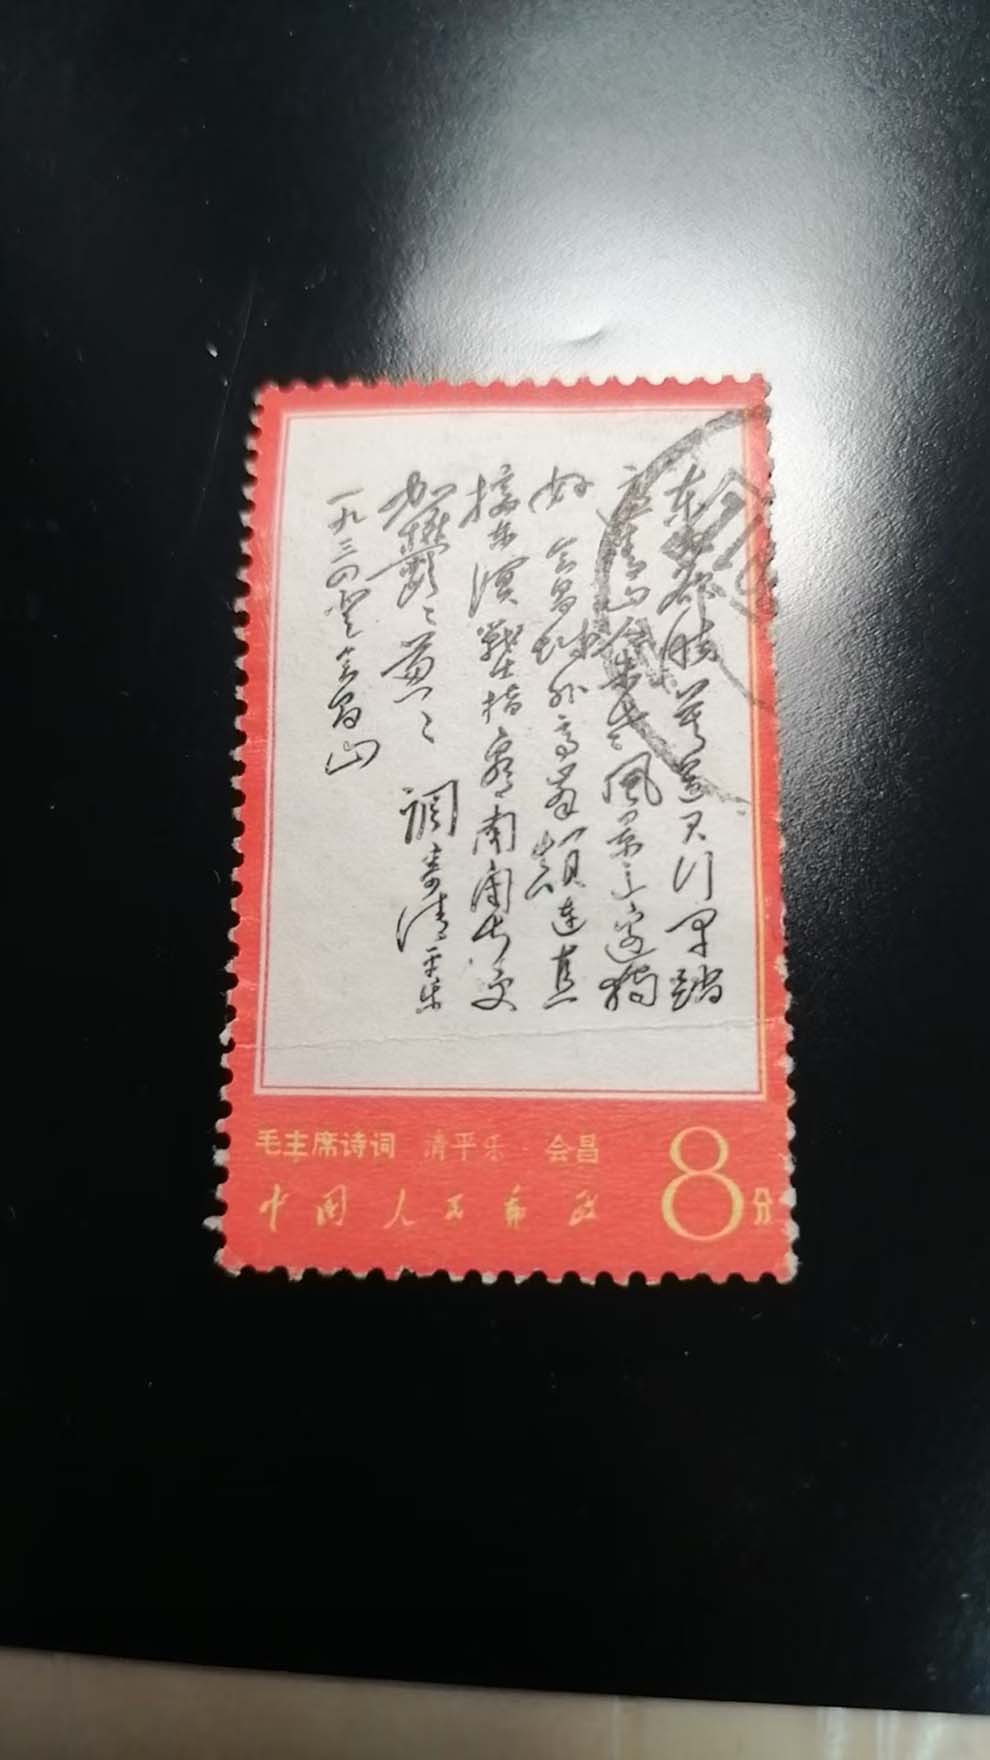 东方欲晓莫道君行早踏
遍青山人未老风景这边独
好会昌城外高峰颠连直
接东溟戰士指看南粤更
加鬱〻葱〻 调寄清平乐
一九三四登会昌山
毛主席诗词 清平乐·会昌
中国人民邮政
8分